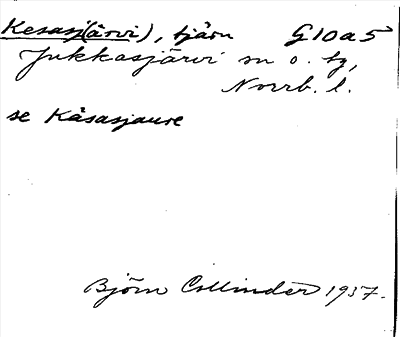 Kesasj(ärvi), tjärn G10a5
Jukkasjärvi sn o. tg,
Norrb. l.
se Kåsasjaure
Björn Collinder 1937.